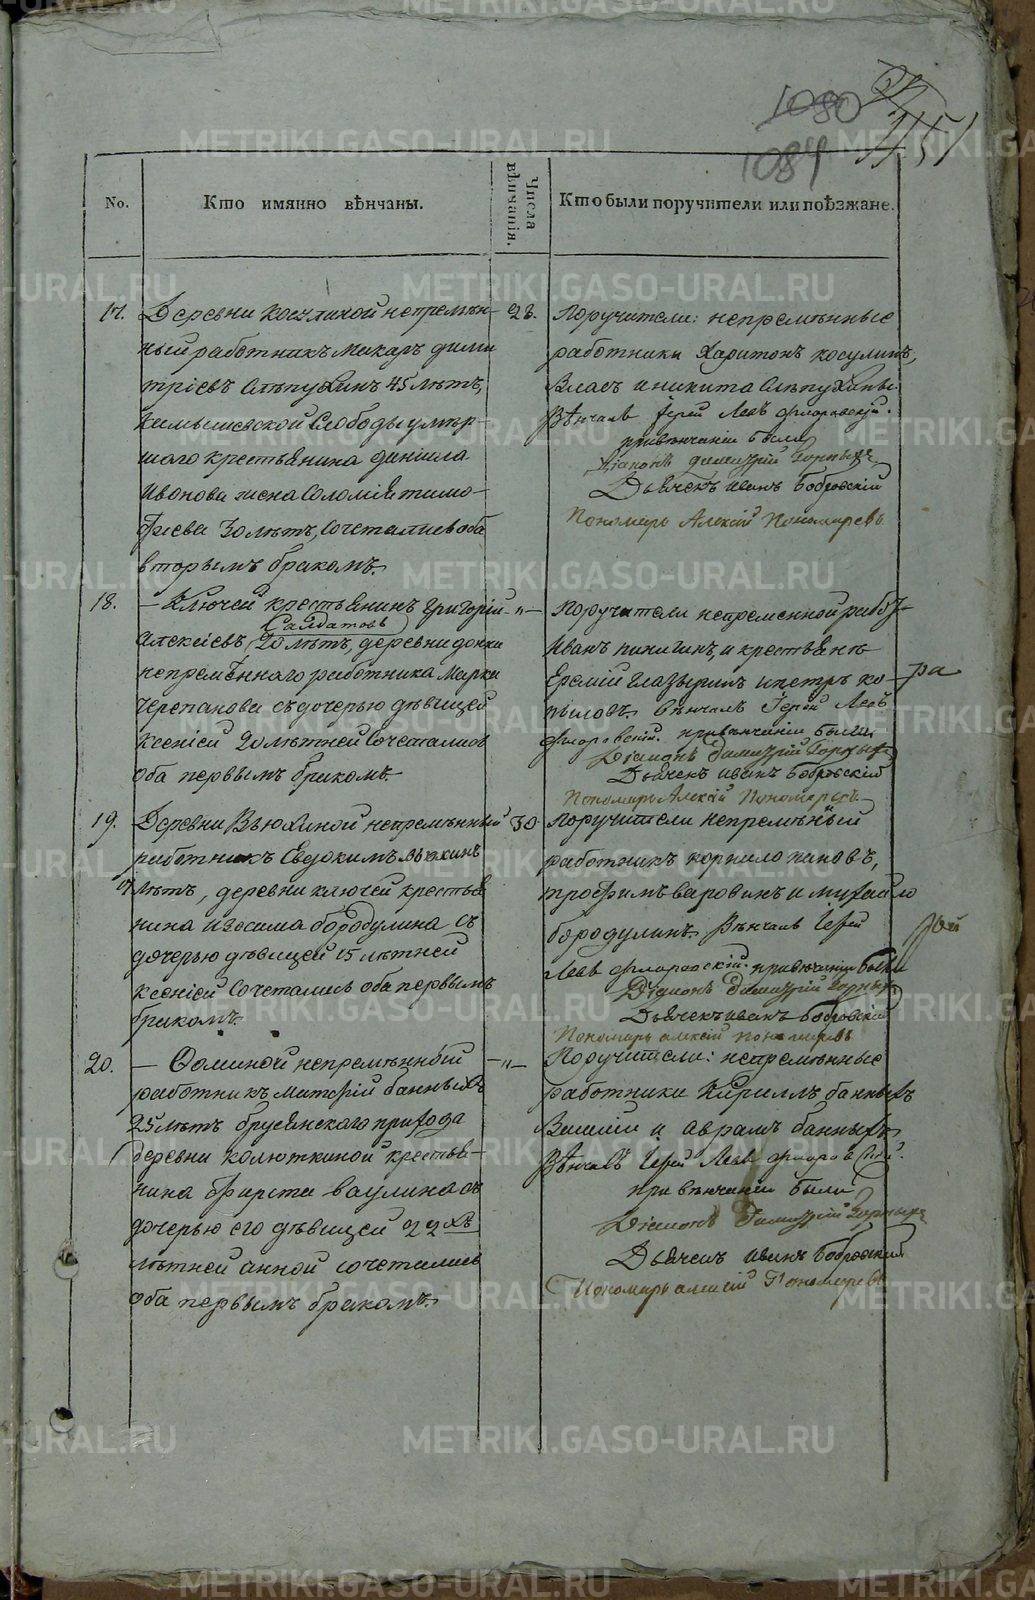 1080
1084
1151
No.
Кто имянно вѣнчаны.
Числа вѣнчанія.
Кто были поручители или поѣзжане.
17. Деревни Косулиной непремѣн-
ный работникъ Макаръ Дими
тріевъ Слѣпухинъ 45 лѣтъ,
Камышевской Слободы умер-
шаго крестьянина Даніила
Иванова жена Соломія Тимо-
фѣева 30 лѣтъ, сочетались оба
вторымъ бракомъ.
28.
Поручители: непремѣнные
работники Харитонъ Косулинъ,
Власъ и Никита Слѣпухины.
Вѣнчалъ Іерей Левъ Флоровскій.
при вѣнчаніи были
Діаконъ Димитрій Горныхъ
Дьячекъ Иванъ Бобровскій
Пономарь Алексій Пономаревъ
18. — Ключей крестьянинъ Григорій
Салдатовъ
Алексіевъ 20 лѣтъ, деревни
непремѣннаго работника Марка
Черепанова съ дочерью дѣвицей
Ксеніей 20 лѣтней сочетались
оба первымъ бракомъ.
-"-
Поручители непременной рабо-
Иванъ Пинигинъ, и крестьяне
Еремій Глазыринъ и Петръ Ко-
пыловъ. Вѣнчалъ Іерей Левъ
Флоровскій. при вѣнчаніи были
Діаконъ Димитрій Горныхъ
Дьячекъ Иванъ Бобровскій
Пономарь Алексій Пономаревъ
ра
19. Деревни Вьюхиной непремѣнный
работникъ Евдокимъ Вьюхинъ
17 лѣтъ, деревни Ключей крестья
нина Изосима Бородулина съ
дочерью дѣвицей 15 лѣтней
Ксеніей сочетались оба первымъ
бракомъ.
30
Поручители непремѣнный
работникъ Корнило Пановъ,
Трофимъ и Михайло
Бородулинъ. Вѣнчалъ Іерей
Левъ Флоровскій. при вѣнчаніи были
Діаконъ Димитрій Горныхъ
Дьячекъ Иванъ Бобровскій
Пономарь Алексій Пономаревъ
20. — Фоминой непремѣнный
работникъ Матфій Банныхъ
25 лѣтъ Брусянскаго прихода
деревни Колюткиной крестья-
нина Фирста Ваулина съ
дочерью его дѣвицей 22хъ
лѣтней Анной сочетались
оба первымъ бракомъ.
-"-
Поручители: непремѣнные
работники Кириллъ Банныхъ
Василій и Аврамъ Банныхъ
Вѣнчалъ Іерей Левъ Флоровскій.
при вѣнчаніи были
Діаконъ Димитрій Горныхъ
Дьячекъ Иванъ Бобровскій
Пономарь Алексій Пономаревъ
METRIKI.GASO-URAL.RU